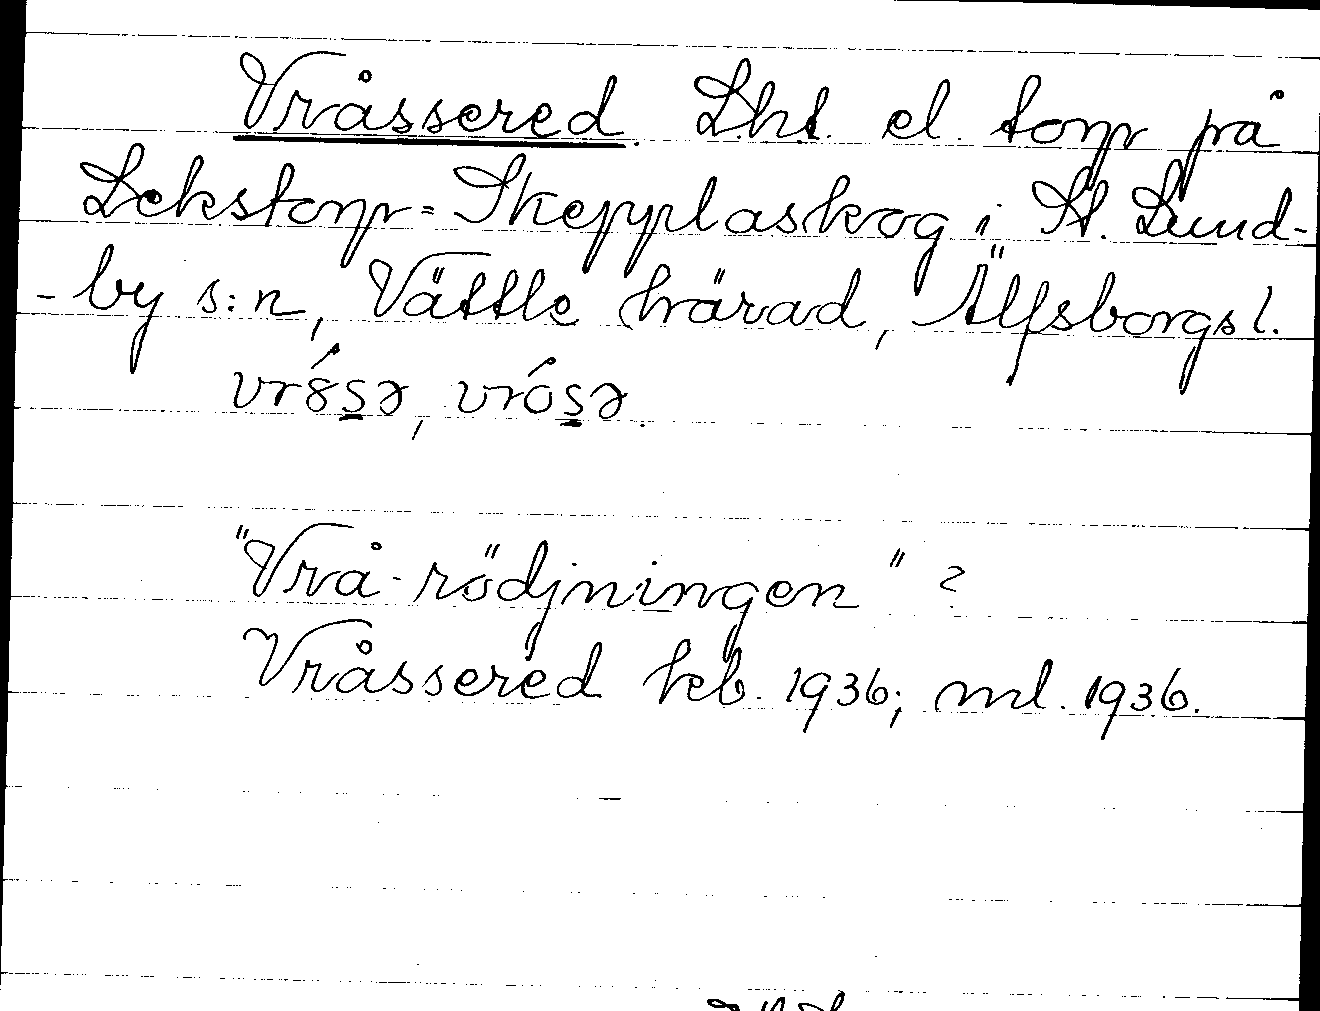 Vråssered. Lht. el. torp på
Lekstorp-Skepplaskog i St. Lund-
-by s:n, Vättle härad, Älfsborgs l.
vrȣ́s̱ə, vrós̱ə.
"Vrå-rödjningen" ?
Vråssered keb. 1936; ml. 1936.